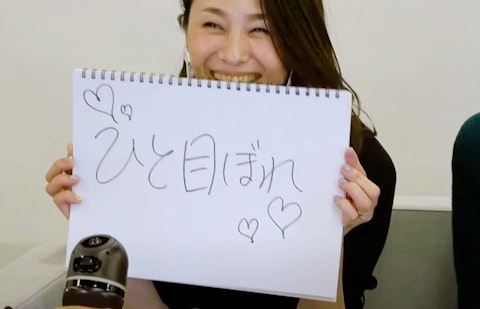 ひと目ぼれ